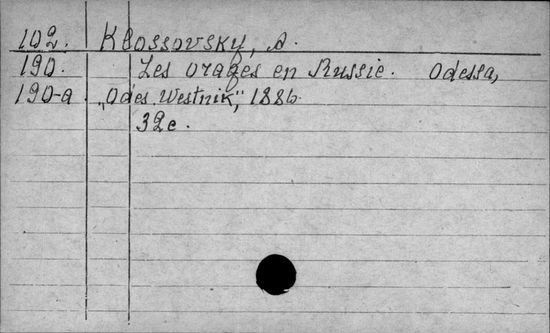 102. Klossovsky, A.
190. Les orages en Russie. Odessa,
190-a. „Odes. Westnik", 1886.
32c.